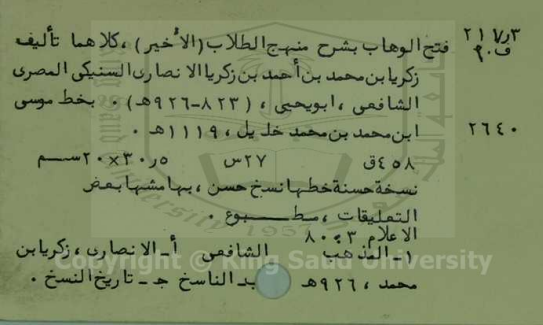 ٢١٧٫٣ فتح الوهاب بشرح منهج الطلاب (الأخير) ، كلاهما تأليف
ف٠٩ زكريا بن محمد بن أحمد بن زكريا الانصارى السنيكي المصرى
الشافعى ، ابويحيى ، (٨٢٣-٩٢٦هـ) . بخط موسى
٢٦٤٠ ابن محمد بن محمد خليل ، ١١١٩هـ .
٤٥٨ق ٢٧س ٣٠٫٥×٢٠سم
نسخة حسنة خطها نسخ حسن ، بهامشها بعض
التعليقات ، مطبوع .
الاعلام ٣ : ٨٠
١- المذهب الشافعى أ- الانصارى ، زكريا بن
محمد ، ٩٢٦هـ ب- الناسخ جـ - تاريخ النسخ .
Copyright © King Saud University